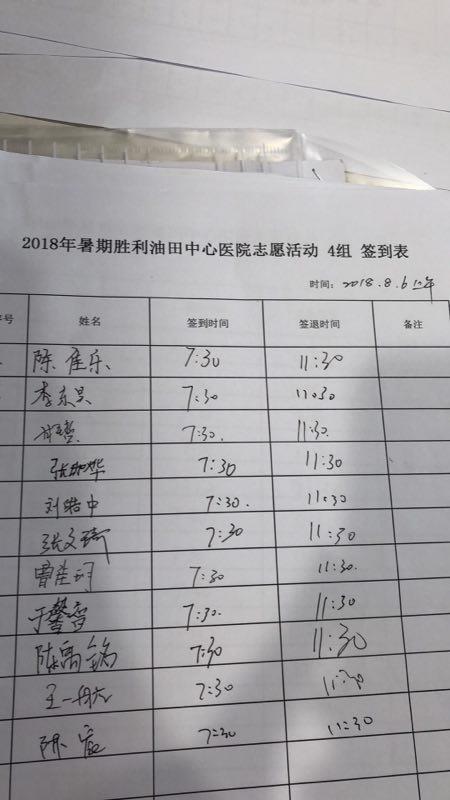 2018年暑期胜利油田中心医院志愿活动 4组 签到表
时间: 2018.8.6上午
序号 姓名 签到时间 签退时间 备注
陈佳乐 7:30 11:30
李东昊 7:30 11:30
7:30. 11:30.
张珈烨 7:30 11:30
刘皓中 7:30. 11:30
张文琦 7:30 11:30
曹佳珂 7:30 11:30.
于馨雪 7:30. 11:30
陈禹铭 7:30 11:30
王一 7:30 11:30
陈 7:30 11:30